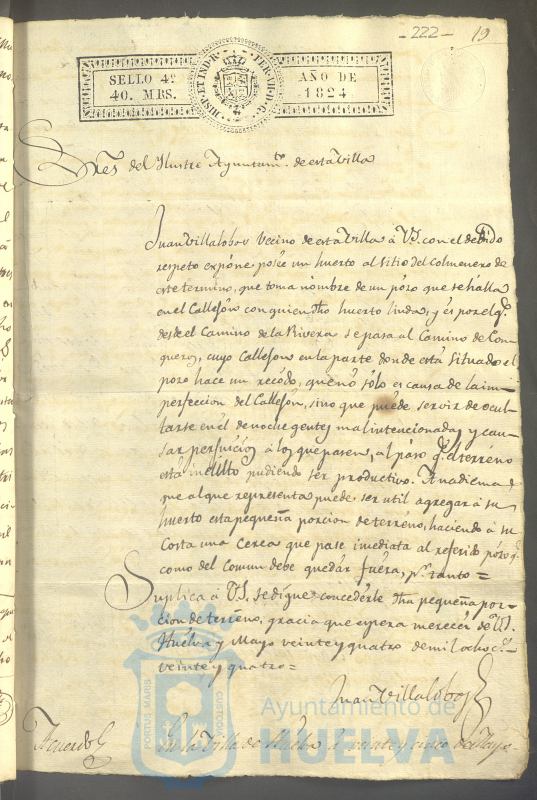 -222- 19
SELLO 4º AÑO DE
40. MRS. 1824
HISP. ET IND. R. FER. VII. D. G.
Sres. del Ilustre Ayuntamto. de esta Villa
Juan Villalobos Vecino de esta Villa á V.S. con el devido
respeto expóne: posée un huerto al sitio del Colmenero de
este termino, que toma nombre de un pozo que se halla
en el Callejón con quien dho huerto linda, y es por el q.
desde el Camino de la Rivera se pasa al Camino de Con
queros, cuyo Callejón en la parte donde está situado el
pozo hace un recódo, que nó sólo es causa de la im-
perfeccion del Callejón, sino que puéde servir de ocul
tarse en él de noche gentes mal intencionadas y cau-
sar perjuicios á los que pasen, al páso q. el terreno
está inculto pudiendo ser productivo. Anadiendo
que al que representa puede ser util agregar á su
huerto esta pequeña porcion de terréno, haciendo á su
costa una Cerca que pase imediata al referido pózo q.
como del comun debe quedár fuera, pr. tanto=
Suplica á V.S. se digne concederle dha pequeña por-
cion de terréno, gracia que espera merecér de V.S.
Huelva y Mayo veinte y quatro de mil ocho cs.
veinte y quatro=
Juan Villalobos
Acuerdo En la Villa de Huelva á veinte y cinco de Mayo
PORTUS MARIS ET TERRAE CUSTODIA
Ayuntamiento de
HUELVA